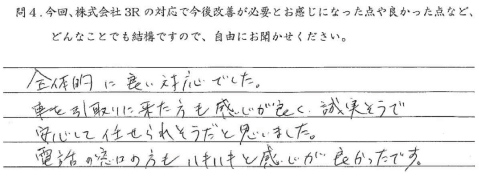 問4．今回、株式会社3Rの対応で今後改善が必要とお感じになった点や良かった点など、
どんなことでも結構ですので、自由にお聞かせください。
全体的に良い対応でした。
車を引取りに来た方も感じが良く、誠実そうで
安心して任せられそうだと思いました。
電話の窓口の方もハキハキと感じが良かったです。